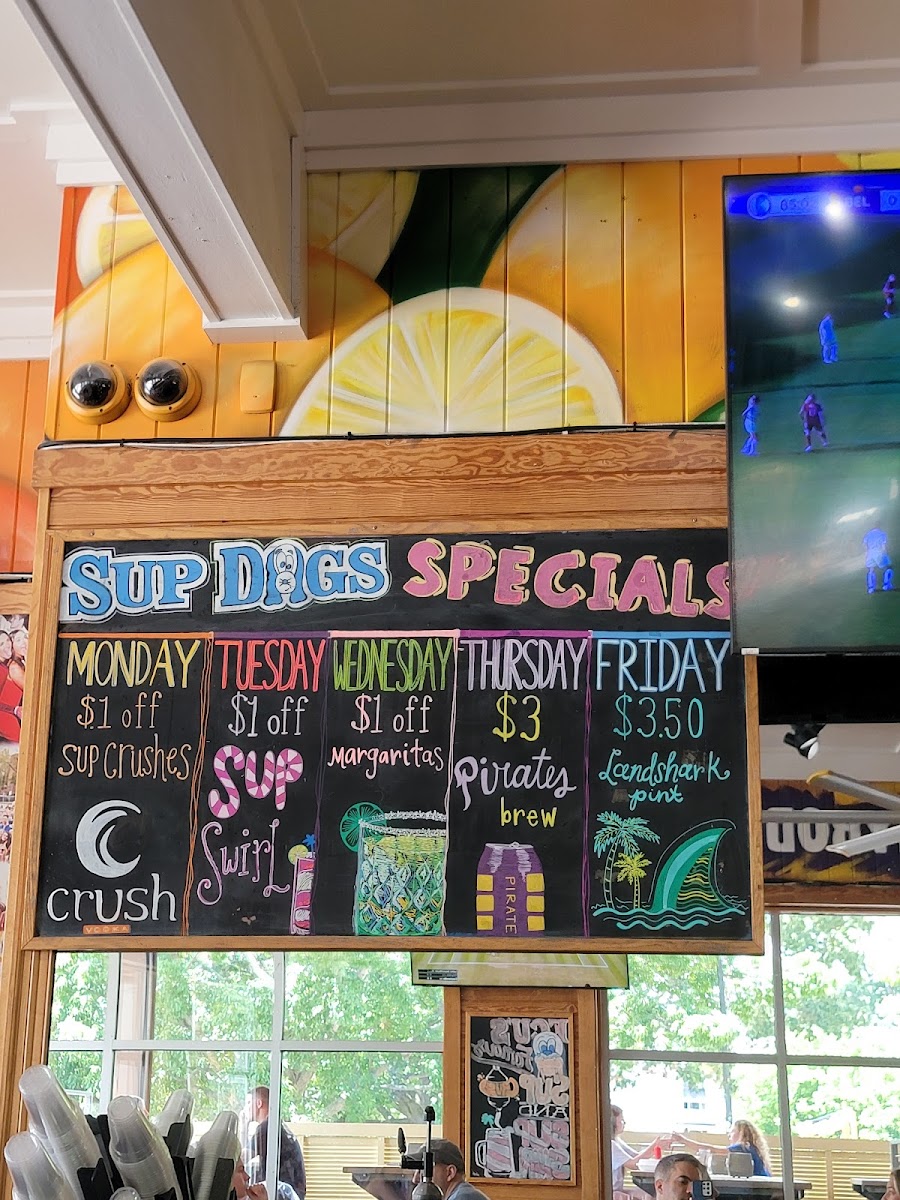 SUP DOGS SPECIALS
MONDAY
$1 off
SUP Crushes
crush
VODKA
TUESDAY
$1 off
SUP
Swirl
WEDNESDAY
$1 off
Margaritas
THURSDAY
$3
Pirates
brew
PIRATE
FRIDAY
$3.50
Landshark
pint
ECU'S
SUP
AND